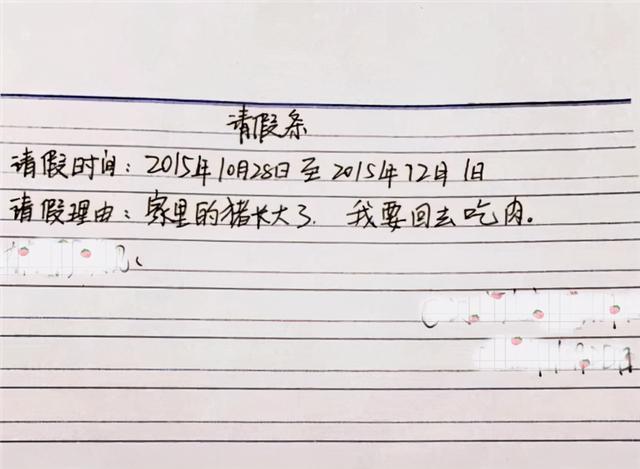 请假条
请假时间：2015年10月28日至2015年12月1日
请假理由：家里的猪长大了，我要回去吃肉。